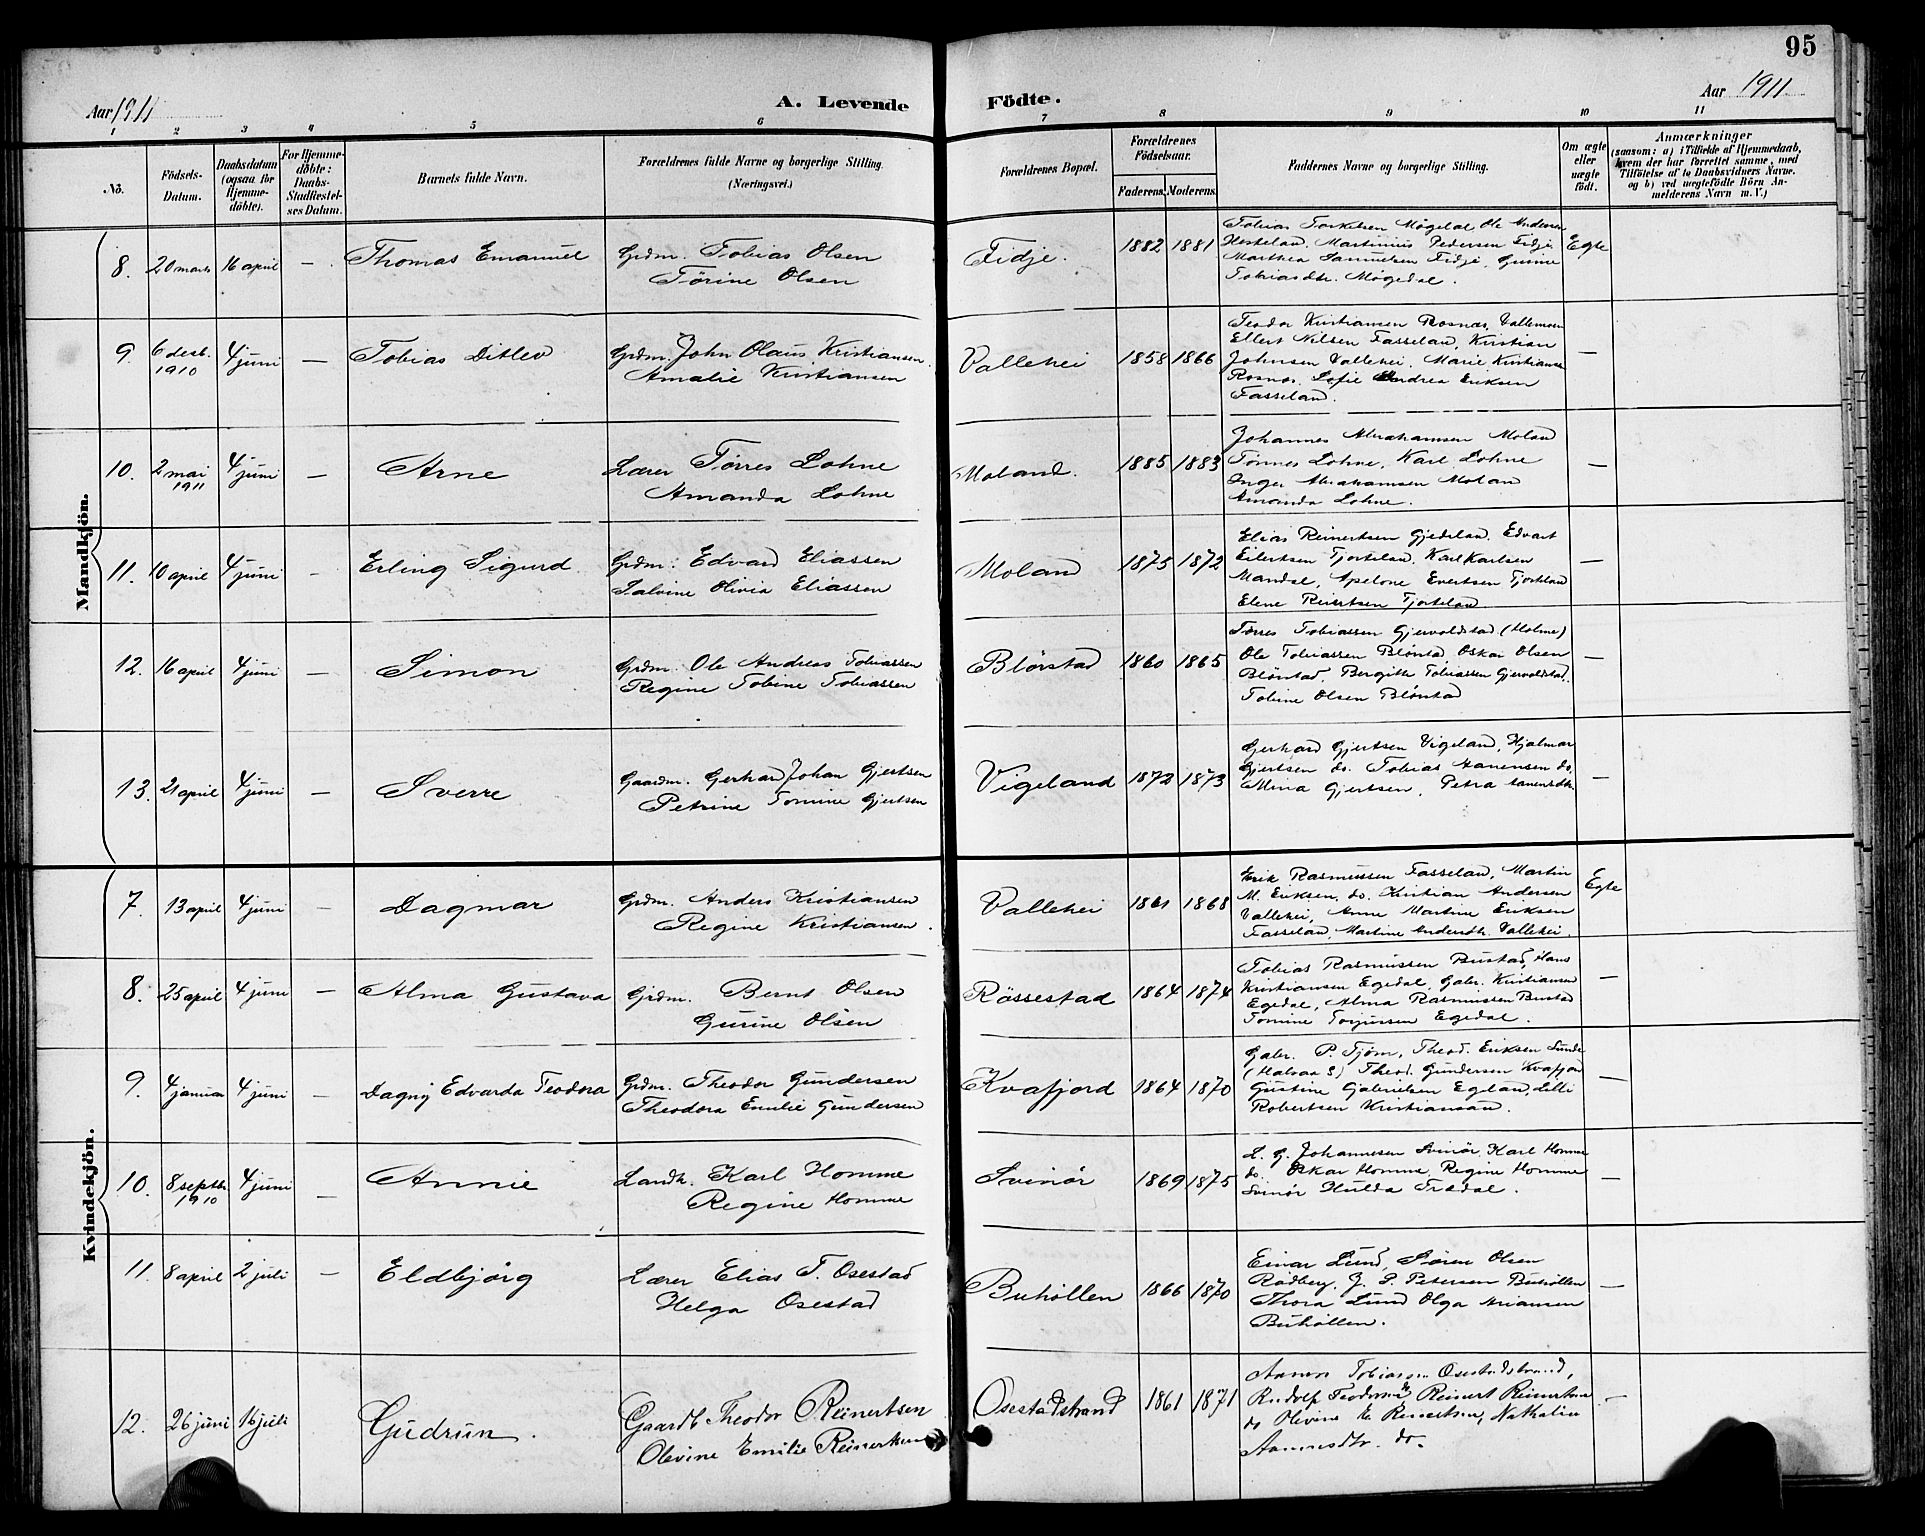 95
Aar 1911
A. Levende Födte.
Aar 1911
1 2 3 4 5 6 7 8 9 10 11
No.
Födsels-Datum.
Daabsdatum (ogsaa for Hjemme-döbte).
For Hjemme-döbte: Daabs-Stadfæstel-ses Datum.
Barnets fulde Navn.
Forældrenes fulde Navne og borgerlige Stilling. (Næringsvei.)
Forældrenes Bopæl.
Forældrenes Födselsaar.
Faderens. Moderens.
Faddernes Navne og borgerlige Stilling.
Om ægte eller uægte födt.
Anmærkninger
(saasom: a) i Tilfælde af Hjemmedaab,
hvem der har forrettet samme, med
Tilföielse af to Daabsvidners Navne.
og b) ved uægtefödte Börn An-
melderens Navn m. V.)
Mandkjön.
8. 20 marts 16 april — Thomas Emanuel Grdm. Tobias Olsen
Tørine Olsen
Fidje. 1882 1881
Tobias Torkelsen Møgedal, Ole Andersen
Hesteland, Martinius Pedersen Fidje
Marthea Samuelsen Fidje, Gurine
Tobiasdtr. Møgedal.
Egte
9. 6 desb. 1910 4 juni — Tobias Ditlev Grdm. John Olaus Kristiansen.
Amalie Kristiansen
Vallehei 1858 1866
Teodor Kristiansen Rosnæs, Vallemoen
Ellert Nilsen Fasseland, Kristian
Johnsen Vallehei, Marie Kristiansen
Rosnæs, Sofie Andrea Eriksen
Fasseland.
—
10. 2 mai 1911 4 juni — Arne Lærer Tørres Lohne
Amanda Lohne
Moland. 1885 1883
Johannes Abrahamsen Moland
Tønnes Lohne, Karl Lohne
Inger Abrahamsen Moland
Amanda Lohne.
—
11. 10 april 4 juni — Erling Sigurd Grdm. Edvard Eliassen
Salvine Olivia Eliassen
Moland 1875 1872
Elias Reinertsen Gjedeland, Edvart
Eilertsen Tjorteland, Karl Karlsen
Mandal, Apelone Evertsen Tjorteland
Elene Reiertsen Tjorteland
—
12. 16 april 4 juni — Simon Grdm. Ole Andreas Tobiassen
Regine Tobine Tobiassen
Blørstad 1860 1865
Tørres Tobiassen Gjervoldstad (Holme)
Ole Tobiassen Blørstad, Oskar Olsen
Blørstad, Bergitte Tobiassen Gjervoldstad,
Tobine Olsen Blørstad
—
13. 21 april 4 juni — Sverre Gaardm. Gerhard Johan Gjertsen
Petrine Tomine Gjertsen
Vigeland 1872 1873
Gerhard Gjertsen Vigeland, Hjalmar
Gjertsen do. Tobias Aanensen do,
Mina Gjertsen, Petra Aanensdtr.
—
Kvindekjön.
7. 13 april 4 juni — Dagmar Grdm. Anders Kristiansen
Regine Kristiansen.
Vallehei 1861 1868
Erik Rasmussen Fasseland, Martin
M. Eriksen, do. Kristian Andersen
Vallehei, Anne Martine Eriksen
Fasseland, Martine Andersdtr. Vallehei.
Egte
8. 25 april 4 juni — Alma Gustava Grdm. Bernt Olsen
Gurine Olsen
Røssestad 1864 1874
Tobias Rasmussen Bustad, Hans
Kristiansen Egedal, Gabr. Kristiansen
Egedal, Alma Rasmussen Bustad
Tomine Torjussen Egedal.
—
9. 4 januar 4 juni — Dagny Edvarda Teodora Grdm. Theodor Gundersen
Theodora Emilie Gundersen
Kvafjord 1864 1870
Gabr. P. Tjøm, Theod. Eriksen Sunde
(Halsaa S) Theod. Gundersen Kvafjor
Gustine Gabrielsen Egeland, Lilli
Robertsen Kristiansand.
—
10. 8 septbr. 1910 4 juni — Annie Landh. Karl Homme
Regine Homme
Svinør 1869 1875
L. G. Johannesen Svinør, Karl Homme
do. Oskar Homme, Regine Homme
Svinør Hulda Tredal.
—
11. 8 april 2 juli — Eldbjørg Lærer Elias T. Osestad
Helga Osestad
Buhøllen 1866 1870
Einar Lund, Søren Olsen
Rødberg, J. P. Petersen Buhøllen
Thora Lund Olga Ariansen
Buhøllen.
—
12. 26 juni 16 juli Gudrun. Gaardb. Theodor Reinertsen
Olevine Emilie Reinertsen
Osestadstrand 1861 1871
Aanen Tobiassen Osestadstrand,
Rudolf Teodorsen do Reinert Reinertsen
do Olevine E. Reinertsen, Nathalia
Aanensdtr. do.
—